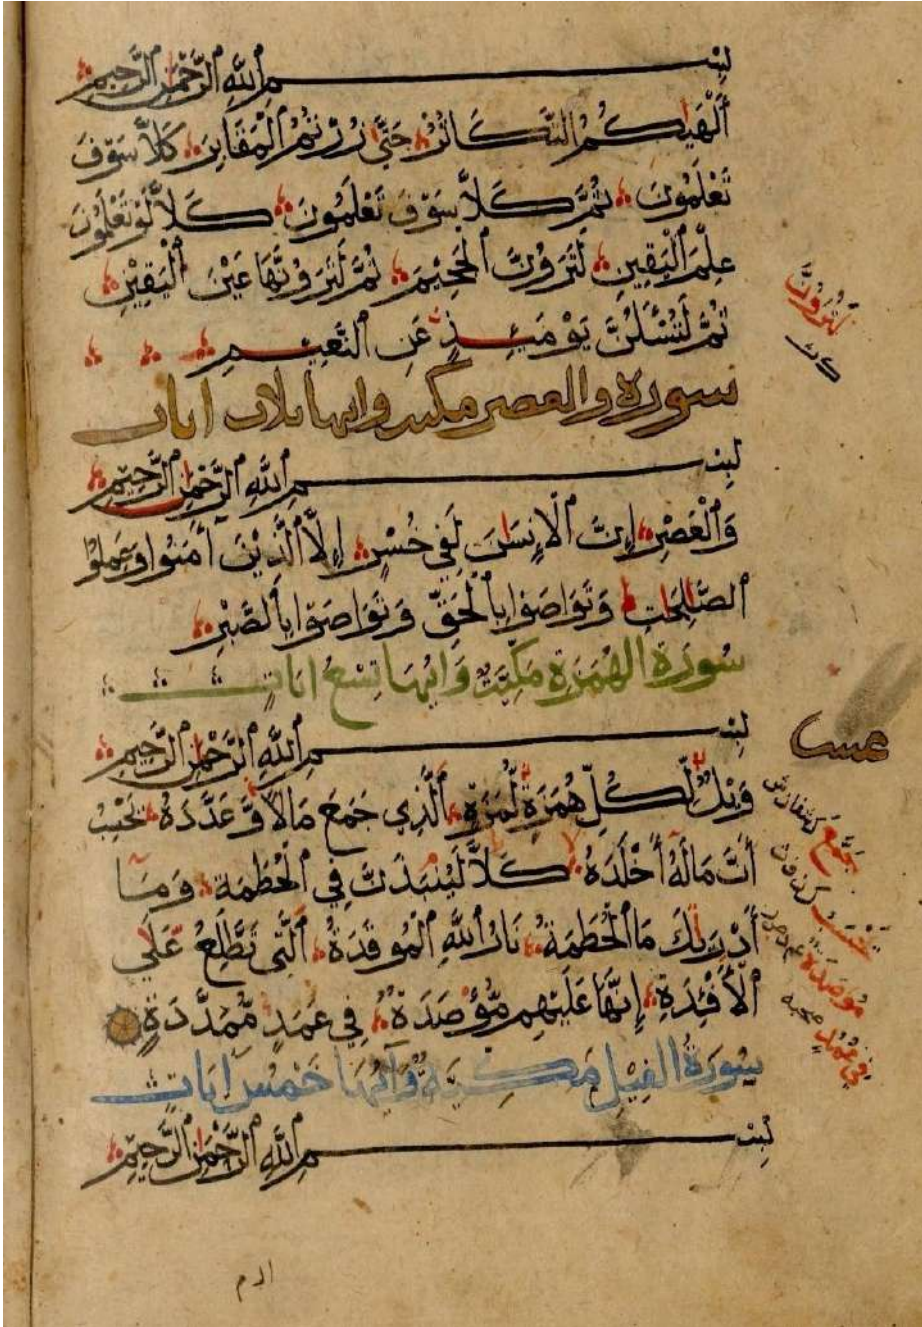 بِسْمِ اللَّهِ الرَّحْمَنِ الرَّحِيمِ
أَلْهَيكُمُ التَّكَاثُرُ حَتَّى زُرْتُمُ الْمَقَابِرَ كَلَّا سَوْفَ
تَعْلَمُونَ ثُمَّ كَلَّا سَوْفَ تَعْلَمُونَ كَلَّا لَوْ تَعْلَمُونَ
عِلْمَ الْيَقِينِ لَتَرَوُنَّ الْجَحِيمَ ثُمَّ لَتَرَوُنَّهَا عَيْنَ الْيَقِينِ
لَتُرَوُنَّ
ثُمَّ لَتُسْئَلُنَّ يَوْمَئِذٍ عَنِ النَّعِيمِ
سورة والعصر مكية وايها ثلاث ايات
بِسْمِ اللَّهِ الرَّحْمَنِ الرَّحِيمِ
وَالْعَصْرِ إِنَّ الْإِنسَانَ لَفِي خُسْرٍ إِلَّا الَّذِينَ آمَنُوا وَعَمِلُوا
الصَّالِحَاتِ وَتَوَاصَوْا بِالْحَقِّ وَتَوَاصَوْا بِالصَّبْرِ
سُورَة الهُمَزَة مَكِيَّة وَايُهَا تِسْعُ ايَاتٍ
بِسْمِ اللَّهِ الرَّحْمَنِ الرَّحِيمِ
وَيْلٌ لِّكُلِّ هُمَزَةٍ لُّمَزَةٍ الَّذِي جَمَعَ مَالًا وَعَدَّدَهُ يَحْسِبُ
أَنَّ مَالَهُ أَخْلَدَهُ كَلَّا لَيُنْبَذَنَّ فِي الْحُطَمَةِ وَمَا
أَدْرَيكَ مَا الْحُطَمَةُ نَارُ اللَّهِ الْمُوقَدَةُ الَّتِي تَطَّلِعُ عَلَى
الْأَفْئِدَةِ إِنَّهَا عَلَيْهِم مُّؤْصَدَةٌ فِي عَمَدٍ مُّمَدَّدَةٍ
جَمَّعَ
يَحْسَبُ
مُوصَدَةٌ
فِي عُمُدٍ
سُورَةُ الفِيلِ مَكِيَّة وَآيُهَا خَمْسُ ايَاتٍ
بِسْمِ اللَّهِ الرَّحْمَنِ الرَّحِيمِ
الم